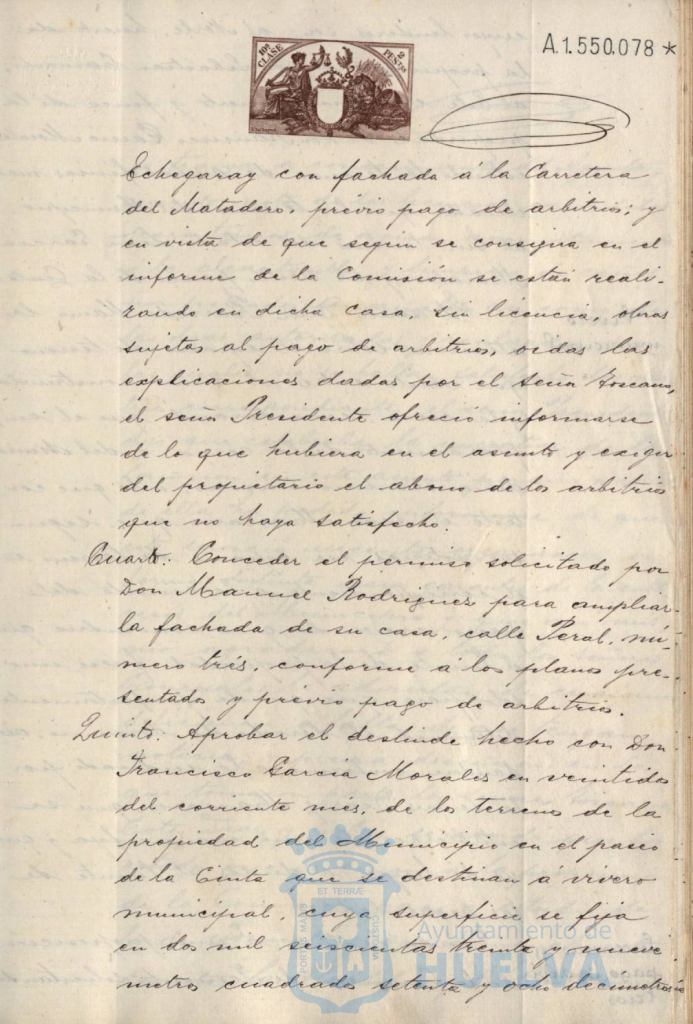 10ª CLASE
2 PESETAS
A.1.550.078 *
Echegaray con fachada á la Carretera
del Matadero, prévio pago de arbitrios; y
en vista de que según se consigna en el
informe de la Comisión se están reali-
zando en dicha casa, sin licencia, obras
sujetas al pago de arbitrios, oidas las
explicaciones dadas por el señor Toscano,
el señor Presidente ofreció informarse
de lo que hubiera en el asunto y exigir
del propietario el abono de los arbitrios
que no haya satisfecho.
Cuarto: Conceder el permiso solicitado por
Don Manuel Rodriguez para ampliar
la fachada de su casa, calle Peral, nú-
mero trés, conforme á los planos pre-
sentados y prévio pago de arbitrios.
Quinto: Aprobar el deslinde hecho con Don
Francisco García Morales en veintidos
del corriente més, de los terrenos de la
propiedad del Municipio en el paseo
de la Cinta que se destinan á vivero
municipal, cuya superficie se fija
en dos mil seiscientos treinta y nueve
metros cuadrados setenta y ocho decimetros
Ayuntamiento de
HUELVA